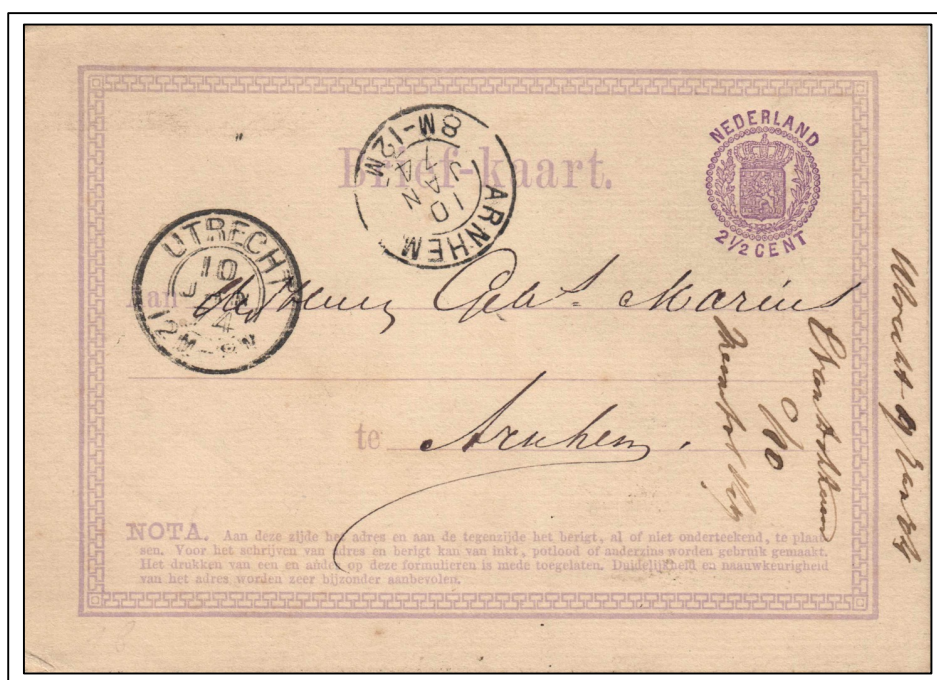 NEDERLAND
2½ CENT
Brief-kaart.
ARNHEM
8M-12M
10
JAN
74
UTRECHT
10
JAN
74
12M-
Aan Gebrs. Marius
te Arnhem.
Utrecht 9 Jan 74
NOTA. Aan deze zijde het adres en aan de tegenzijde het berigt, al of niet onderteekend, te plaat-
sen. Voor het schrijven van adres en berigt kan van inkt, potlood of anderzins worden gebruik gemaakt.
Het drukken van een en ander op deze formulieren is mede toegelaten. Duidelijkheid en naauwkeurigheid
van het adres worden zeer bijzonder aanbevolen.